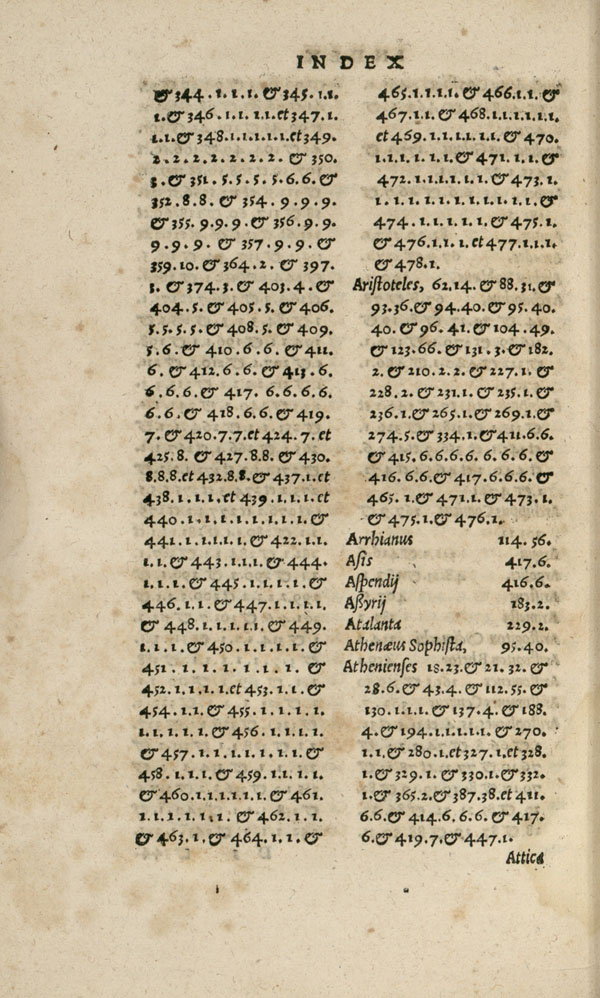 INDEX
& 344.1.1.1. & 345.1.1.
1. & 346.1.1.1.1. et 347.1.
1.1. & 348.1.1.1.1.1. et 349.
2.2.2.2.2.2.2. & 350.
3. & 351.5.5.5.5.6.6. &
352.8.8. & 354.9.9.9.
& 355.9.9.9. & 356.9.9.
9.9.9. & 357.9.9. &
359.10. & 364.2. & 397.
3. & 374.3. & 403.4. &
404.5. & 405.5. & 406.
5.5.5.5. & 408.5. & 409.
5.6. & 410.6.6. & 411.
6. & 412.6.6. & 413.6.
6.6.6. & 417.6.6.6.6.
6.6. & 418.6.6. & 419.
7. & 420.7.7. et 424.7. et
425.8. & 427.8.8. & 430.
8.8.8. et 432.8.8. & 437.1. et
438.1.1.1. et 439.1.1.1. et
440.1.1.1.1.1.1.1.1. &
441.1.1.1.1.1. & 422.1.1.
1.1. & 443.1.1.1. & 444.
1.1.1. & 445.1.1.1.1.1. &
446.1.1. & 447.1.1.1.1.
& 448.1.1.1.1.1. & 449.
1.1.1. & 450.1.1.1.1.1. &
451.1.1.1.1.1.1.1. &
452.1.1.1.1. et 453.1.1. &
454.1.1. & 455.1.1.1.1.
1.1.1.1.1. & 456.1.1.1.1.
& 457.1.1.1.1.1.1.1. &
458.1.1.1. & 459.1.1.1.1.
& 460.1.1.1.1.1.1. & 461.
1.1.1.1.1.1. & 462.1.1.
& 463.1. & 464.1.1. &
465.1.1.1.1. & 466.1.1. &
467.1.1. & 468.1.1.1.1.1.1.
et 469.1.1.1.1.1.1. & 470.
1.1.1.1.1.1. & 471.1.1. &
472.1.1.1.1.1.1. & 473.1.
1.1.1.1.1.1.1.1.1.1.1. &
474.1.1.1.1.1. & 475.1.
& 476.1.1.1. et 477.1.1.1.
& 478.1.
Aristoteles, 62.14. & 88.31. &
93.36. & 94.40. & 95.40.
40. & 96.41. & 104.49.
& 123.66. & 131.3. & 182.
2. & 210.2.2. & 227.1. &
228.2. & 231.1. & 235.1. &
236.1. & 265.1. & 269.1. &
274.5. & 334.1. & 411.6.6.
& 415.6.6.6.6.6.6.6. &
416.6.6. & 417.6.6.6. &
465.1. & 471.1. & 473.1.
& 475.1. & 476.1.
Arrhianus 114.56.
Asis 417.6.
Aspendij 416.6.
Aßyrij 183.2.
Atalanta 229.2.
Athenæus Sophista, 95.40.
Athenienses 18.23. & 21.32. &
28.6. & 43.4. & 112.55. &
130.1.1.1. & 137.4. & 188.
4. & 194.1.1.1.1.1. & 270.
1.1. & 280.1. et 327.1. et 328.
1. & 329.1. & 330.1. & 332.
1. & 365.2. & 387.38. et 411.
6.6. & 414.6.6.6. & 417.
6. & 419.7. & 447.1.
Attica